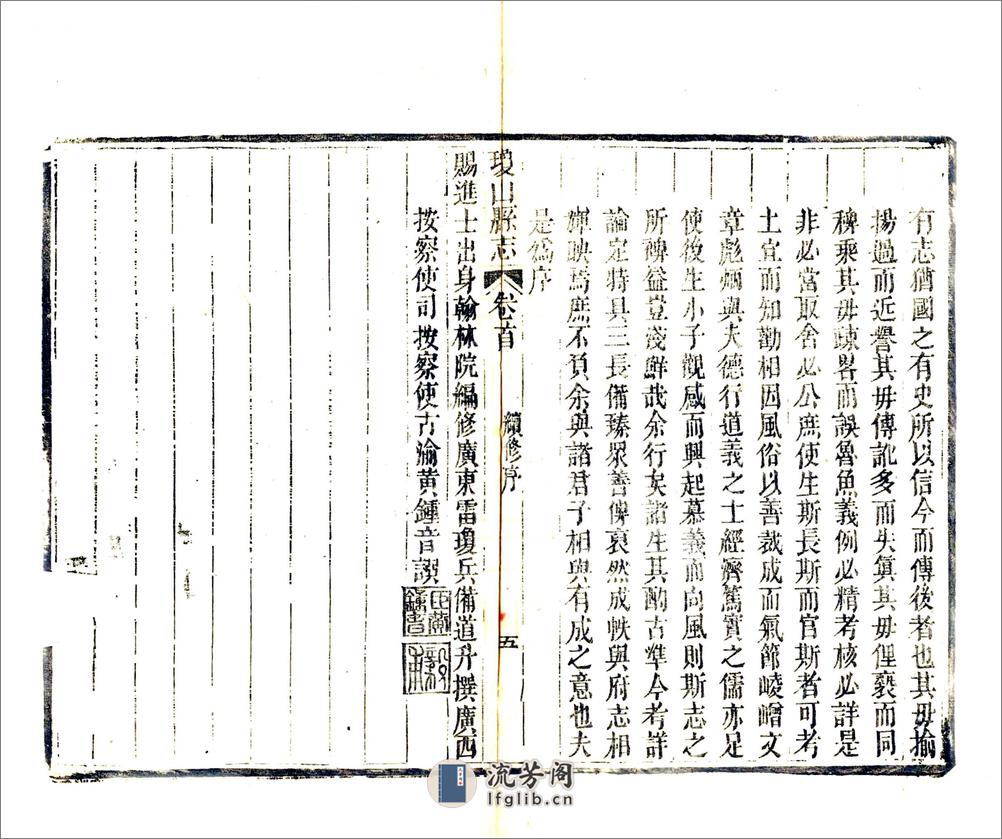 有志猶國之有史所以信今而傳後者也其毋揄
揚過而近譽其毋傳訛多而失真其毋俚褻而同
稗乘其毋疎畧而誤魯魚義例必精考核必詳是
非必當取舍必公庶使生斯長斯而官斯者可考
土宜而知勤相因風俗以善裁成而氣節崚嶒文
章彪炳與夫德行道義之士經濟篤實之儒亦足
使後生小子觀感而興起慕義而向風則斯志之
所裨益豈淺鮮哉余行矣諸生其酌古準今考詳
論定特具三長備臻眾善俾裒然成帙與府志相
輝映焉庶不負余與諸君子相與有成之意也夫
是為序
瓊山縣志 卷首 續修序 五
賜進士出身翰林院編修廣東雷瓊兵備道升撰廣西
按察使司按察使古渝黃鍾音譔
流芳阁
lfglib.cn